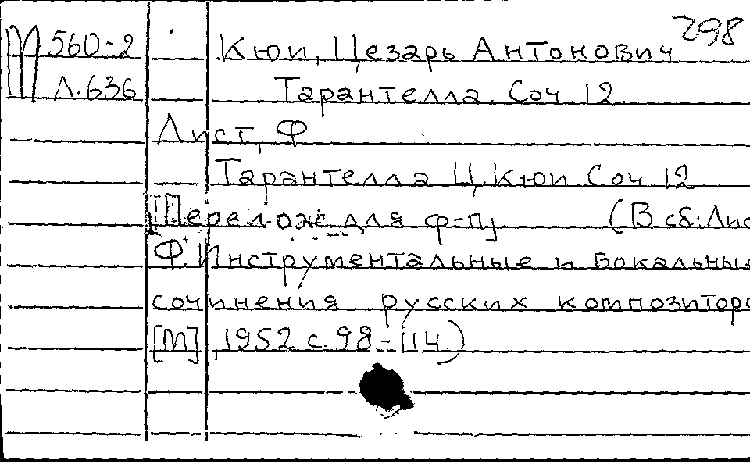 298
М 560-2 Кюи, Цезарь Антонович
Л.636 Тарантелла. Соч 12
Лист, Ф
Тарантелла Ц. Кюи Соч 12
[Перелож. для ф-п] (В сб: Лис
Ф. Инструментальные и вокальные
сочинения русских композиторо
[М] 1952 с. 98-114)